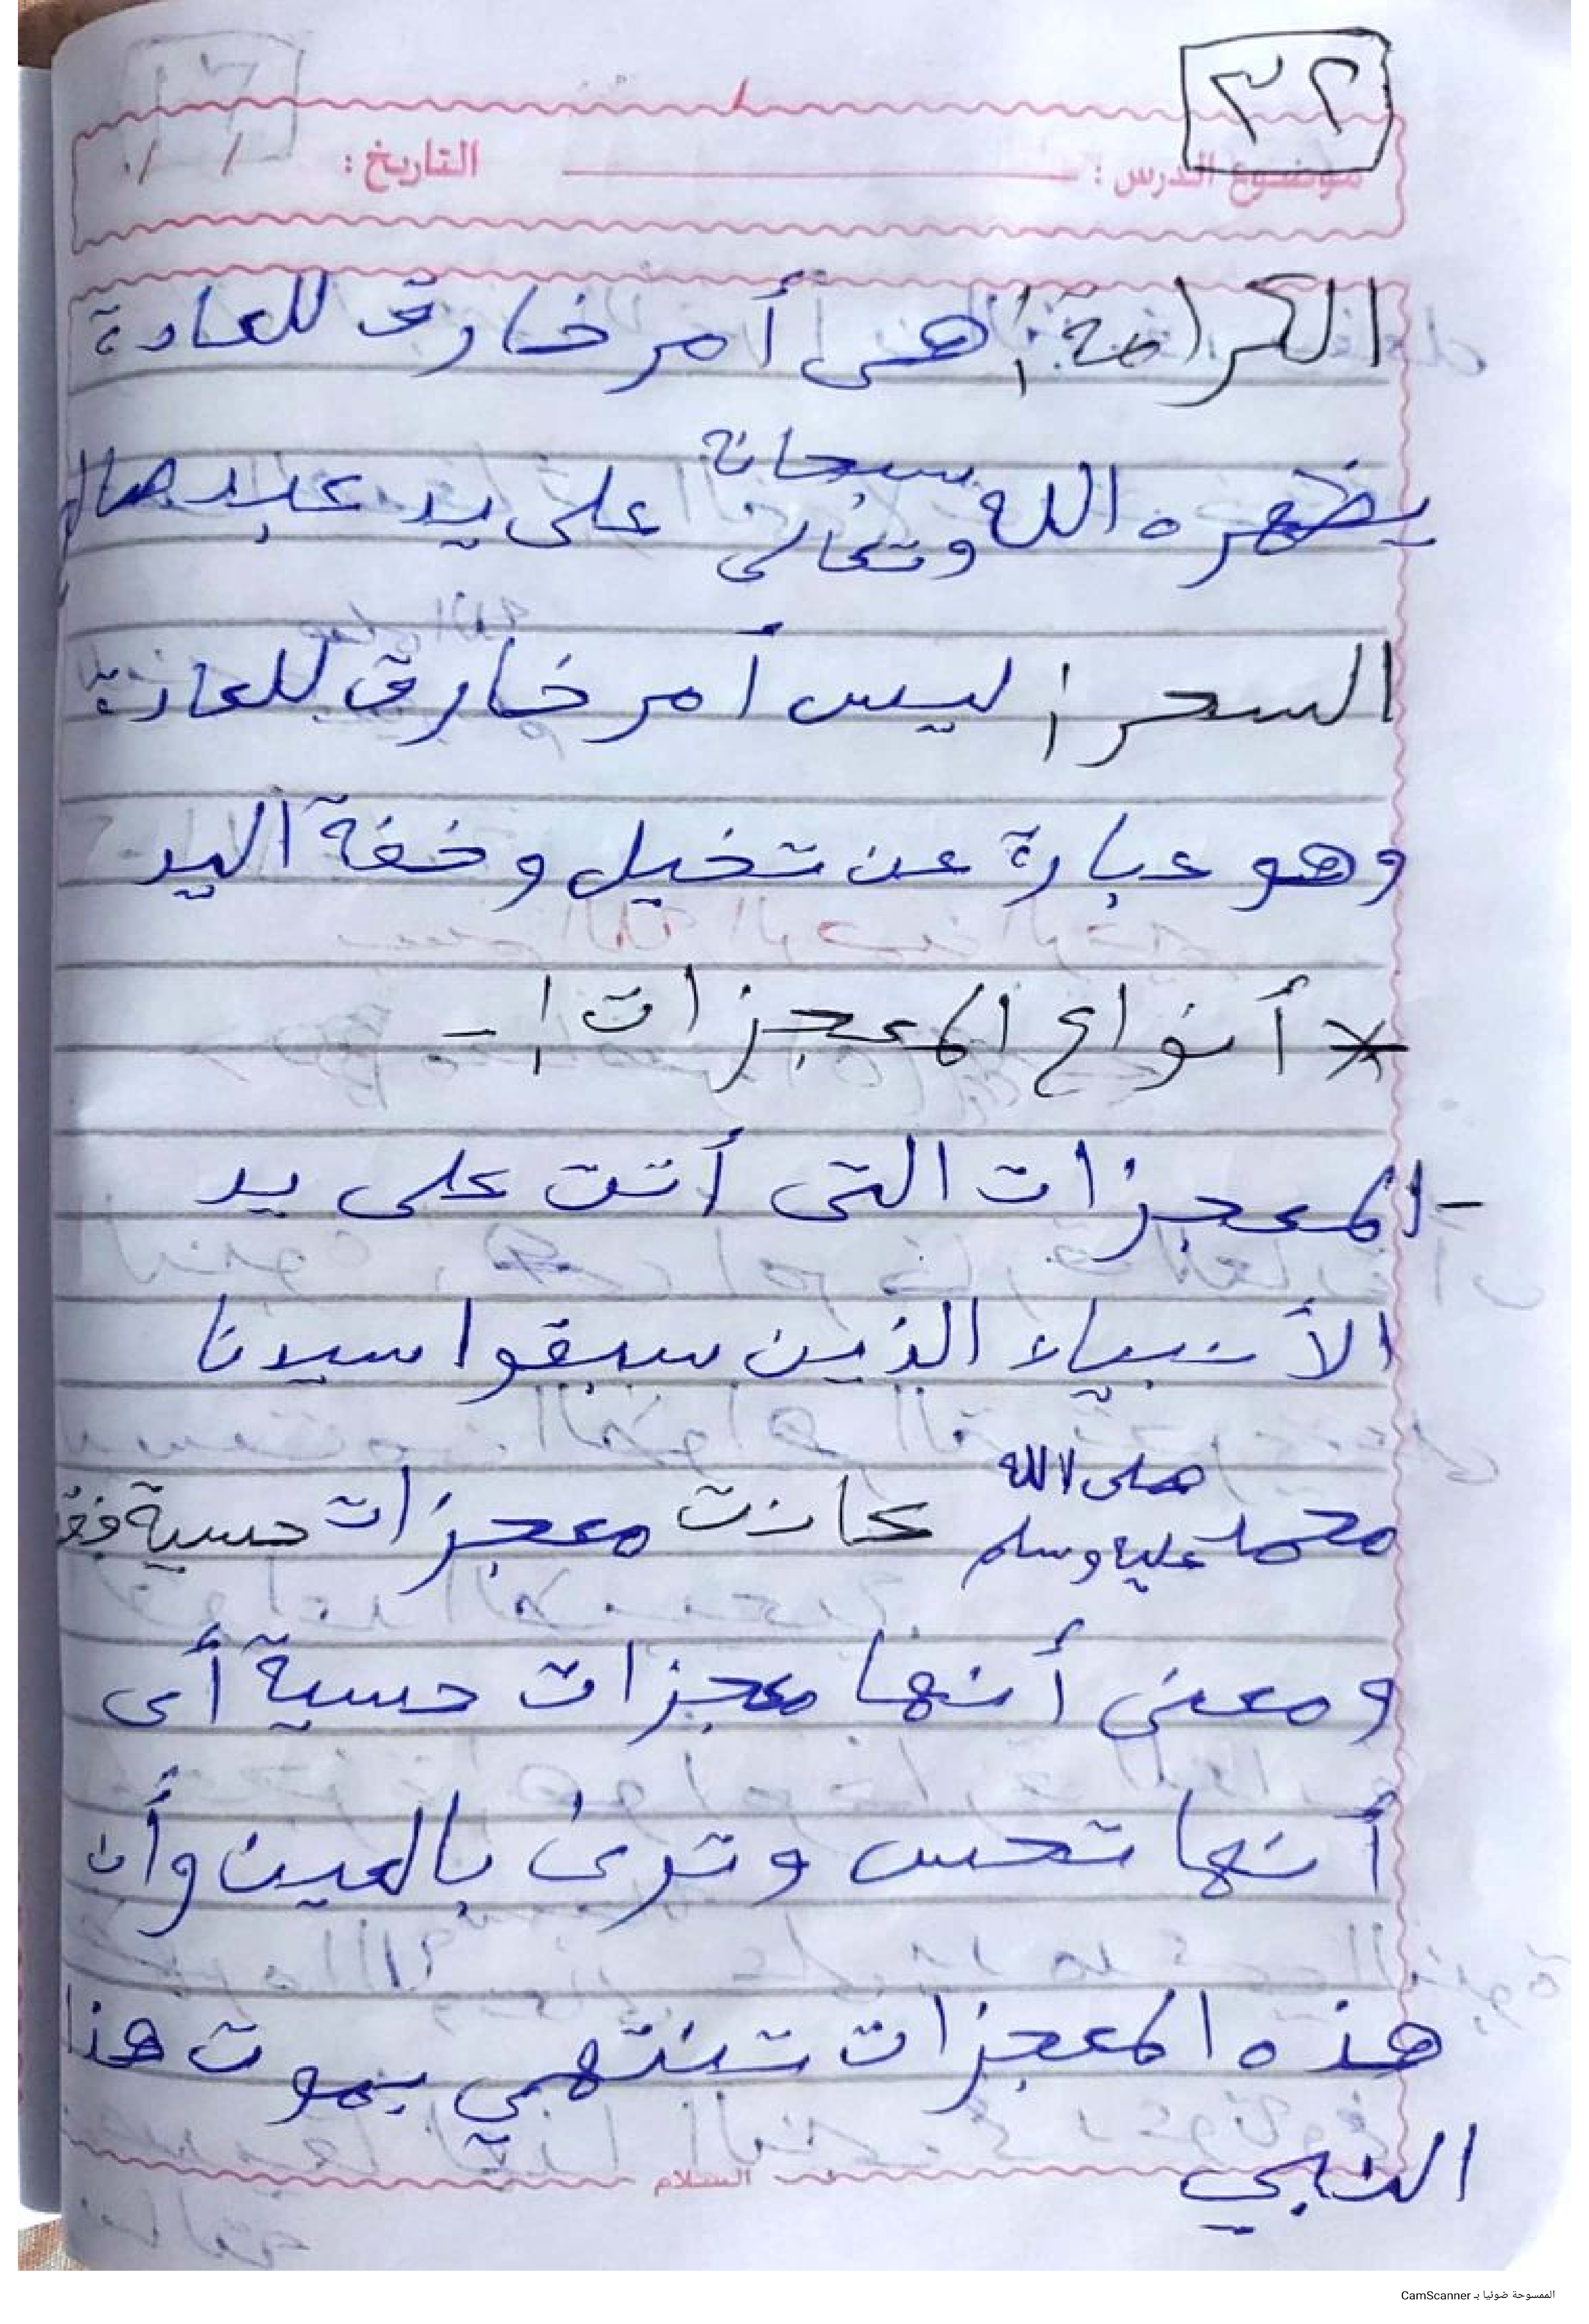 ٣٢
موضوع الدرس : التاريخ : / /
الكرامة : هى أمر خارق للعادة
يظهره الله سبحانة وتعالى على يد عبد صالح
السحر : ليس أمر خارق للعادة
وهو عبارة عن تخيل وخفة اليد
* أنواع المعجزات :-
- المعجزات التى أتت على يد
الأنبياء الذين سبقوا سيدنا
محمد صلى الله عليه وسلم كانت معجزات حسية فقط
ومعنى أنها معجزات حسية أى
أنها تحس وترى بالعين وأن
هذه المعجزات تنتهي بموت هذا
النبي
السلام
الممسوحة ضوئيا بـ CamScanner